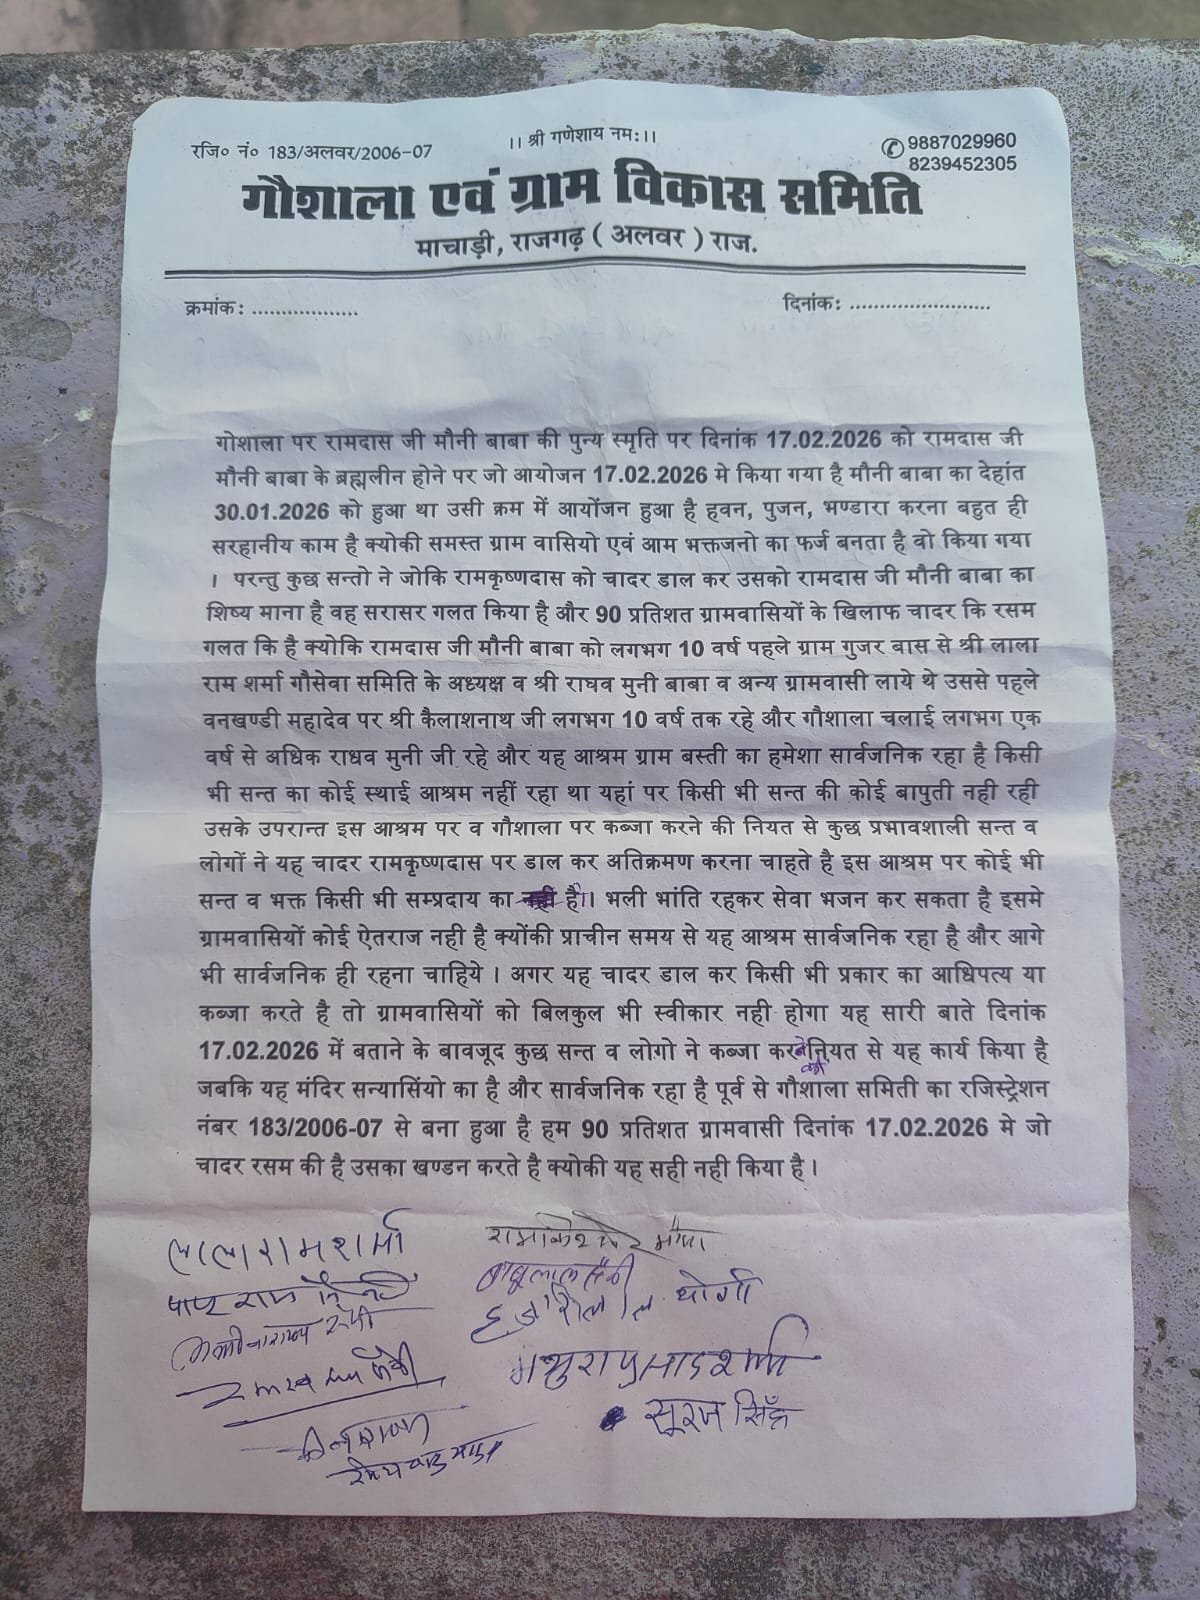 ।। श्री गणेशाय नमः।।
रजि० नं० 183/अलवर/2006-07
9887029960
8239452305
गौशाला एवं ग्राम विकास समिति
माचाड़ी, राजगढ़ ( अलवर ) राज.
क्रमांक: ..................
दिनांक: ........................
गोशाला पर रामदास जी मौनी बाबा की पुन्य स्मृति पर दिनांक 17.02.2026 को रामदास जी
मौनी बाबा के ब्रह्मलीन होने पर जो आयोजन 17.02.2026 मे किया गया है मौनी बाबा का देहांत
30.01.2026 को हुआ था उसी क्रम में आयोंजन हुआ है हवन, पुजन, भण्डारा करना बहुत ही
सरहानीय काम है क्योकी समस्त ग्राम वासियो एवं आम भक्तजनो का फर्ज बनता है वो किया गया
। परन्तु कुछ सन्तो ने जोकि रामकृष्णदास को चादर डाल कर उसको रामदास जी मौनी बाबा का
शिष्य माना है वह सरासर गलत किया है और 90 प्रतिशत ग्रामवासियों के खिलाफ चादर कि रसम
गलत कि है क्योकि रामदास जी मौनी बाबा को लगभग 10 वर्ष पहले ग्राम गुजर बास से श्री लाला
राम शर्मा गौसेवा समिति के अध्यक्ष व श्री राघव मुनी बाबा व अन्य ग्रामवासी लाये थे उससे पहले
वनखण्डी महादेव पर श्री कैलाशनाथ जी लगभग 10 वर्ष तक रहे और गौशाला चलाई लगभग एक
वर्ष से अधिक राधव मुनी जी रहे और यह आश्रम ग्राम बस्ती का हमेशा सार्वजनिक रहा है किसी
भी सन्त का कोई स्थाई आश्रम नहीं रहा था यहां पर किसी भी सन्त की कोई बापुती नही रही
उसके उपरान्त इस आश्रम पर व गौशाला पर कब्जा करने की नियत से कुछ प्रभावशाली सन्त व
लोगों ने यह चादर रामकृष्णदास पर डाल कर अतिक्रमण करना चाहते है इस आश्रम पर कोई भी
सन्त व भक्त किसी भी सम्प्रदाय का है। भली भांति रहकर सेवा भजन कर सकता है इसमे
ग्रामवासियों कोई ऐतराज नही है क्योंकी प्राचीन समय से यह आश्रम सार्वजनिक रहा है और आगे
भी सार्वजनिक ही रहना चाहिये । अगर यह चादर डाल कर किसी भी प्रकार का आधिपत्य या
कब्जा करते है तो ग्रामवासियों को बिलकुल भी स्वीकार नही होगा यह सारी बाते दिनांक
17.02.2026 में बताने के बावजूद कुछ सन्त व लोगो ने कब्जा करने की नियत से यह कार्य किया है
जबकि यह मंदिर सन्यासिंयो का है और सार्वजनिक रहा है पूर्व से गौशाला समिती का रजिस्ट्रेशन
नंबर 183/2006-07 से बना हुआ है हम 90 प्रतिशत ग्रामवासी दिनांक 17.02.2026 मे जो
चादर रसम की है उसका खण्डन करते है क्योकी यह सही नही किया है।
लालारामशर्मा
बाबूलाल सैनी
हजारीलाल योगी
मथुराप्रसादशर्मा
सूरज सिंह